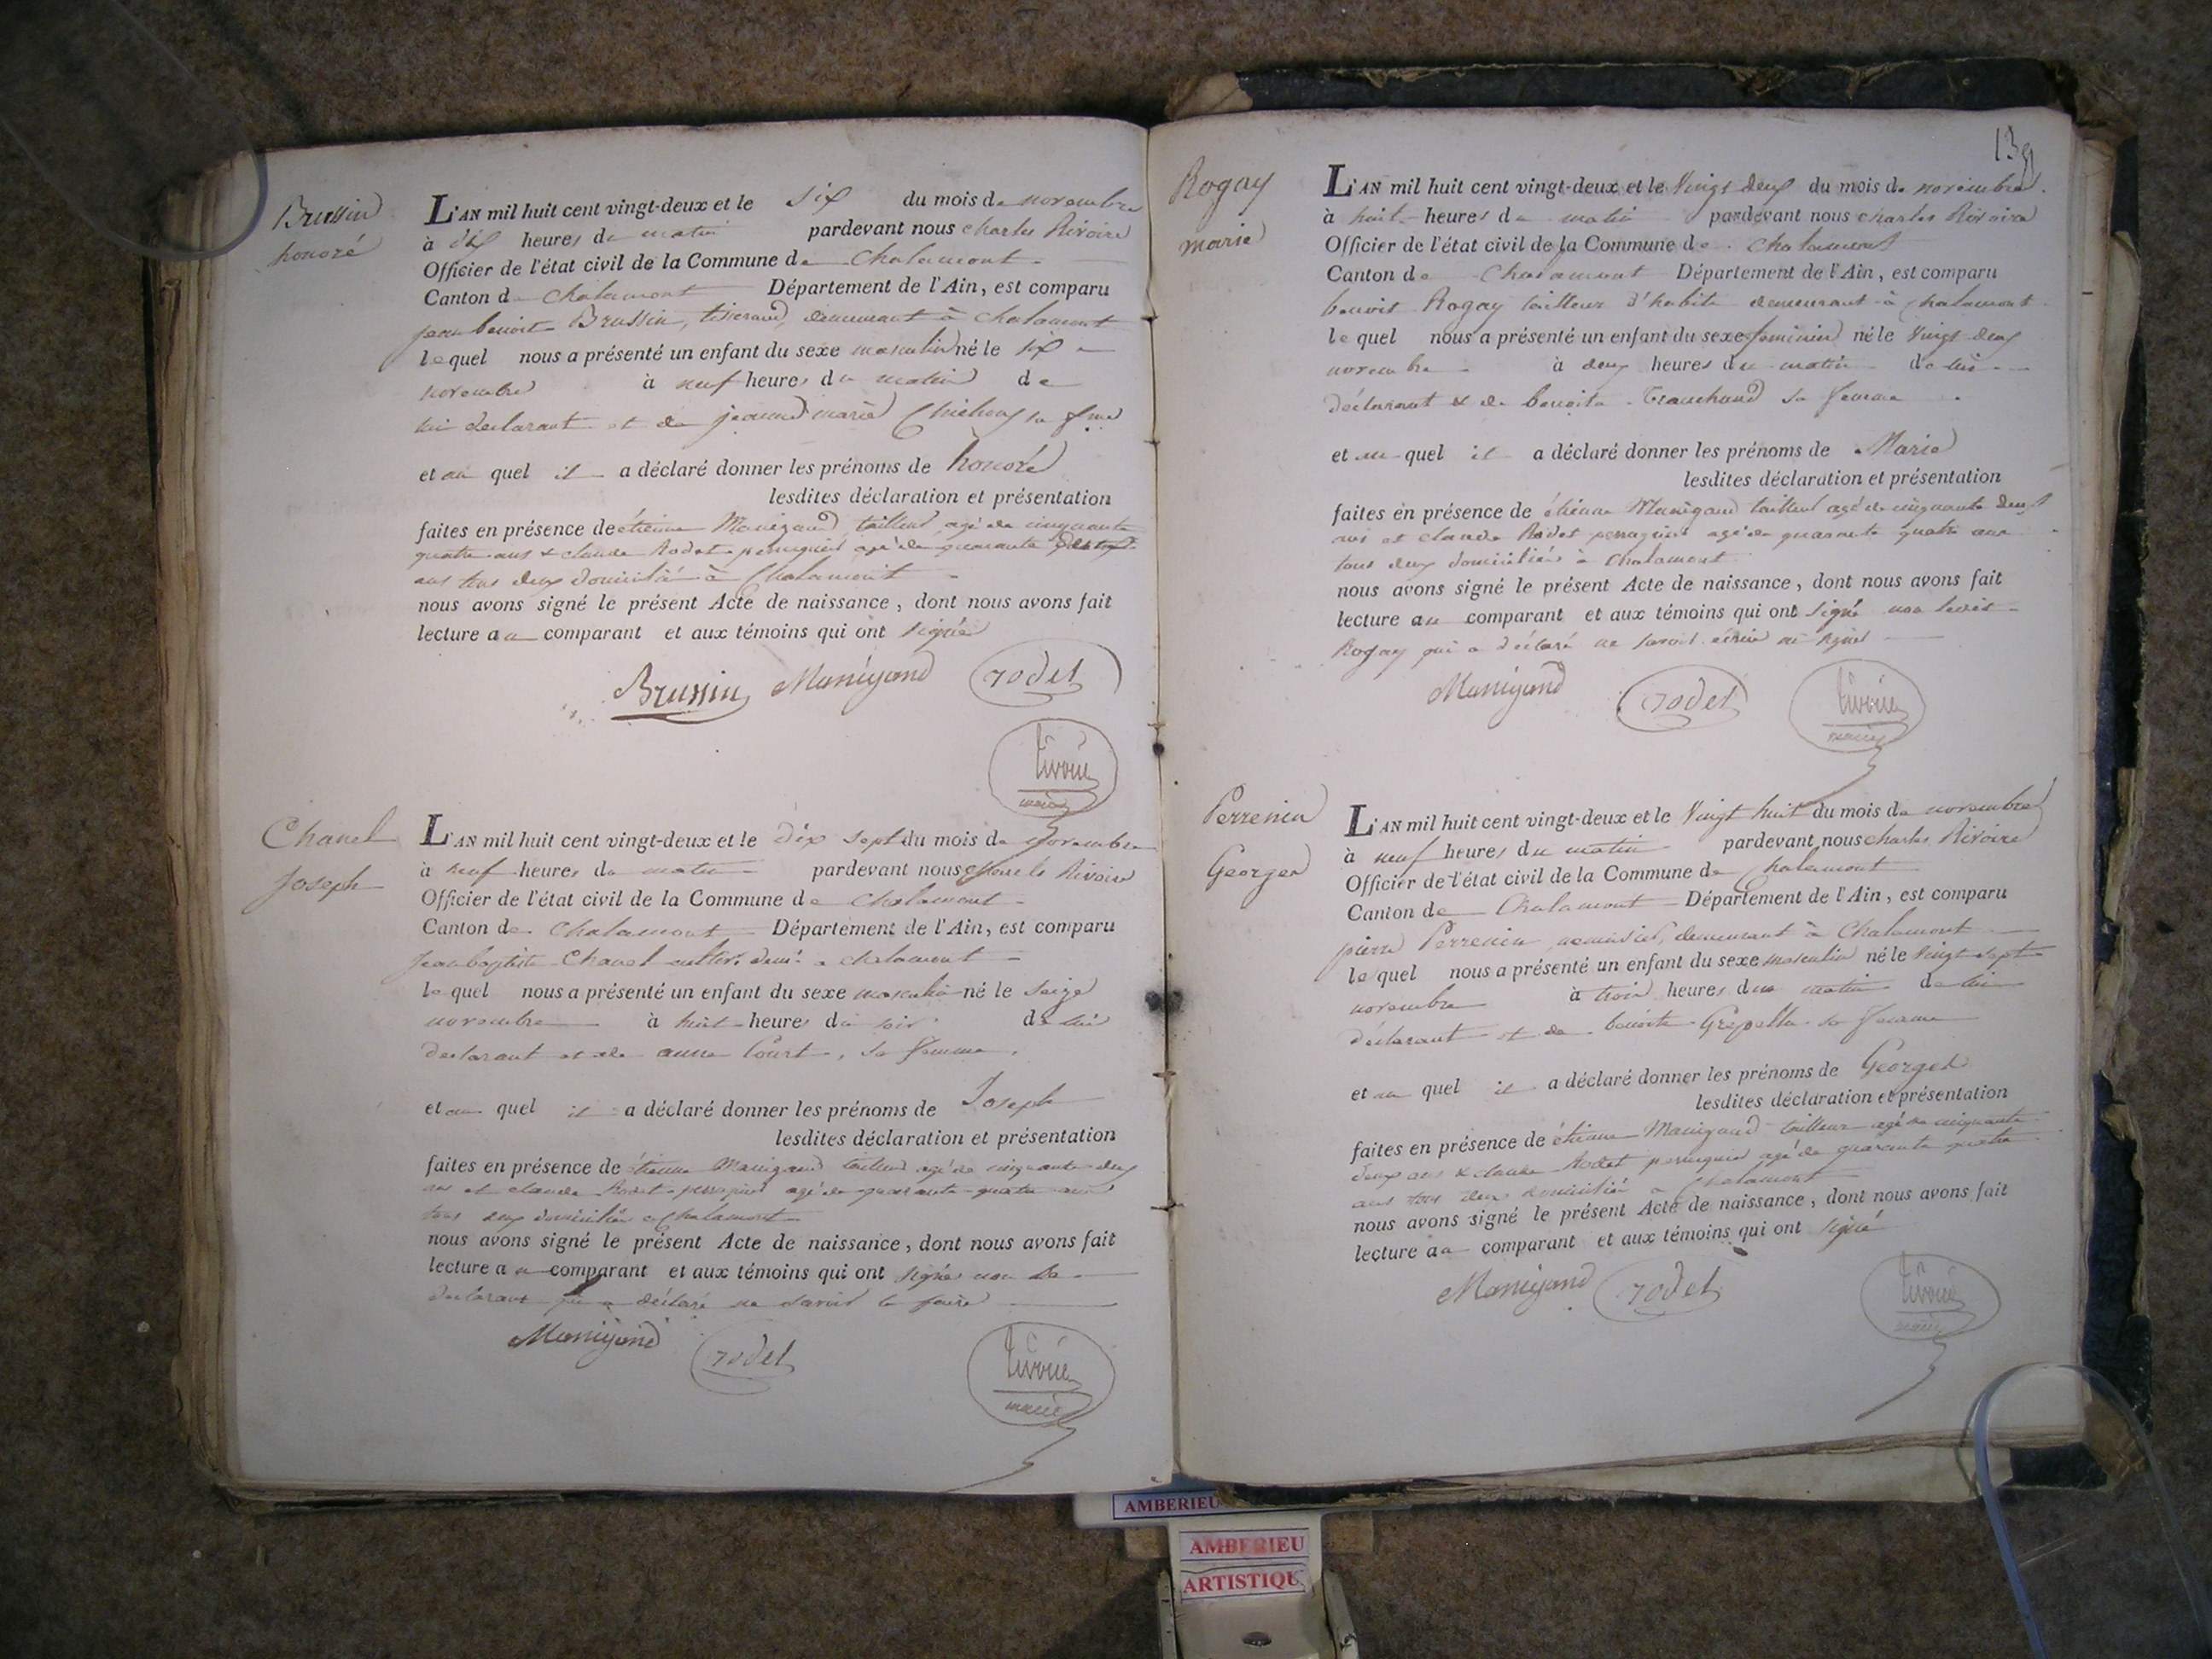 Brussin
honoré
L'AN mil huit cent vingt-deux et le six du mois de novembre
à dix heures du matin pardevant nous charles Rivoire
Officier de l'état civil de la Commune de Chalamont
Canton de Chalamont Département de l'Ain, est comparu
jean benoit Brussin, tisserand, demeurant à Chalamont
lequel nous a présenté un enfant du sexe masculin né le six
novembre à neuf heures du matin de
lui declarant et de jeanne marie sa fme
et au quel il a déclaré donner les prénoms de honoré
lesdites déclaration et présentation
faites en présence de étienne Manigand tailleur agé de cinquante
quatre ans & claude Rodet perruquier agé de quarante
ans tous deux domiciliés à Chalamont
nous avons signé le présent Acte de naissance, dont nous avons fait
lecture au comparant et aux témoins qui ont signés
Brussin Manigand rodet
rivoire
maire
Chanel
Joseph
L'AN mil huit cent vingt-deux et le dix sept du mois de novembre
à neuf heures du matin pardevant nous charles Rivoire
Officier de l'état civil de la Commune de Chalamont
Canton de Chalamont Département de l'Ain, est comparu
Jean baptiste Chanel cultivr. demt. a chalamont
lequel nous a présenté un enfant du sexe masculin né le seize
novembre à huit heures du soir de lui
declarant et de anne Court, sa femme,
et au quel il a déclaré donner les prénoms de Joseph
lesdites déclaration et présentation
faites en présence de étienne Manigand tailleur agé de cinquante deux
ans et claude Rodet perruquier agé de quarante quatre ans
tous deux domiciliés a Chalamont
nous avons signé le présent Acte de naissance, dont nous avons fait
lecture au comparant et aux témoins qui ont signés non le
declarant qui a déclaré ne savoir le faire
Manigand rodet rivoire
maire
139
Rogay
marie
L'AN mil huit cent vingt-deux et le Vingt deux du mois de novembre
à huit heures du matin pardevant nous charles Rivoire
Officier de l'état civil de la Commune de Chalamont
Canton de Chalamont Département de l'Ain, est comparu
benoit Rogay tailleur d'habits demeurant à chalamont
lequel nous a présenté un enfant du sexe feminin né le Vingt deux
novembre à deux heures du matin de lui
déclarant & de benoite Tranchand sa femme
et au quel il a déclaré donner les prénoms de Marie
lesdites déclaration et présentation
faites en présence de étienne Manigand tailleur agé de cinquante deux
ans et claude Rodet perruquier agé de quarante quatre ans
tous deux domiciliés à Chalamont
nous avons signé le présent Acte de naissance, dont nous avons fait
lecture au comparant et aux témoins qui ont signé non ledit
Rogay qui a déclaré ne savoir écrire ni signer
Manigand rodet rivoire
maire
Perrenin
Georges
L'AN mil huit cent vingt-deux et le Vingt huit du mois de novembre
à neuf heures du matin pardevant nous charles Rivoire
Officier de l'état civil de la Commune de Chalamont
Canton de Chalamont Département de l'Ain, est comparu
pierre Perrenin demeurant à Chalamont
lequel nous a présenté un enfant du sexe masculin né le Vingt sept
novembre à trois heures du matin de lui
déclarant et de benoite sa femme
et au quel il a déclaré donner les prénoms de Georges
lesdites déclaration et présentation
faites en présence de étienne Manigand tailleur agé de cinquante
deux ans & claude Rodet perruquier agé de quarante quatre
ans tous deux domiciliés a Chalamont
nous avons signé le présent Acte de naissance, dont nous avons fait
lecture au comparant et aux témoins qui ont signé
Manigand rodet rivoire
maire
AMBERIEU
AMBERIEU
ARTISTIQU